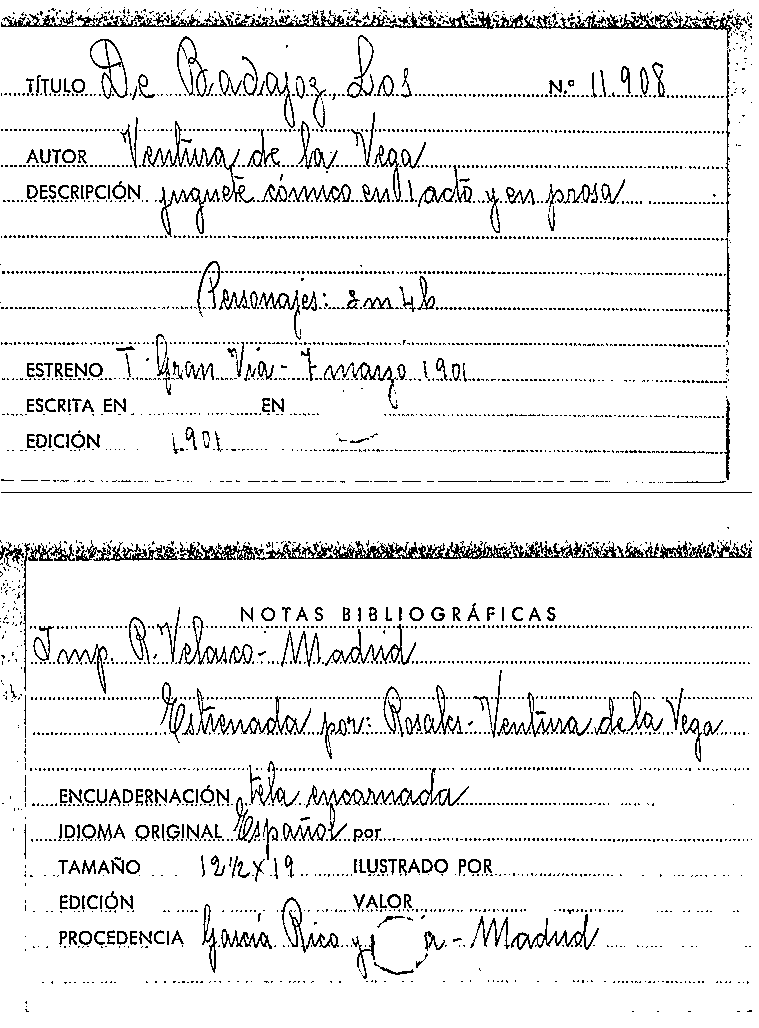 TÍTULO De Badajoz, Los N.º 11.908
AUTOR Ventura de la Vega
DESCRIPCIÓN juguete cómico en 1 acto y en prosa
Personajes: 8 m 4 h
ESTRENO T. Gran Vía - 7 marzo 1901
ESCRITA EN EN
EDICIÓN 1.901
NOTAS BIBLIOGRÁFICAS
Imp. R. Velasco - Madrid
Estrenada por: Rosales - Ventura de la Vega
ENCUADERNACIÓN tela encarnada
IDIOMA ORIGINAL Español por
TAMAÑO 12 1/2 x 19 ILUSTRADO POR
EDICIÓN VALOR
PROCEDENCIA García Rico y - Madrid